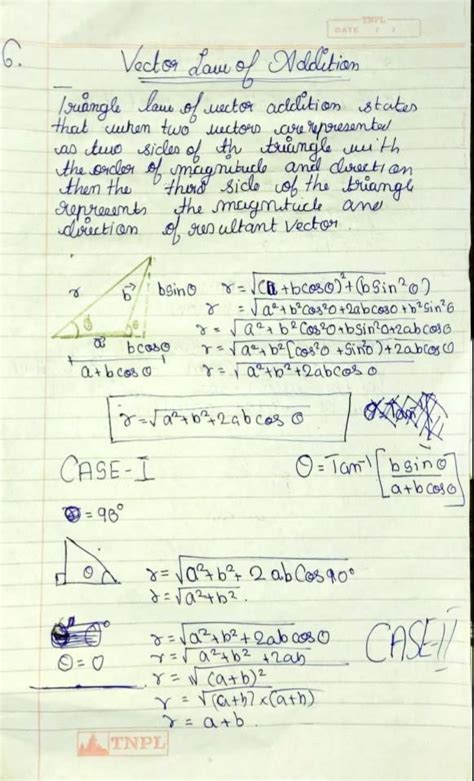 TNPL
DATE / /
6.
Vector Law of Addition
Triangle law of vector addition states
that when two vectors are represented
as two sides of th triangle with
the order of magnitude and direction
then the third side of the triangle
represents the magnitude and
direction of resultant vector.
r b→ bsinθ
θ θ
a→ bcosθ
a+bcosθ
r = √(a+bcosθ)²+(bsin²θ)
r = √a²+b²cos²θ+2abcosθ+b²sin²θ
r = √a²+b²cos²θ+bsin²θ+2abcosθ
r = √a²+b²[cos²θ+sin²θ)+2abcosθ
r = √a²+b²+2abcosθ
r = √a²+b²+2abcosθ
CASE-I
θ = Tan⁻¹ [bsinθ / a+bcosθ]
= 90°
θ
r = √a²+b²+2abCos90°
r = √a²+b².
θ = 0
r = √a²+b²+2abcosθ
r = √a²+b²+2ab
r = √(a+b)²
r = √(a+b)×(a+b)
r = a+b.
CASE-II
TNPL